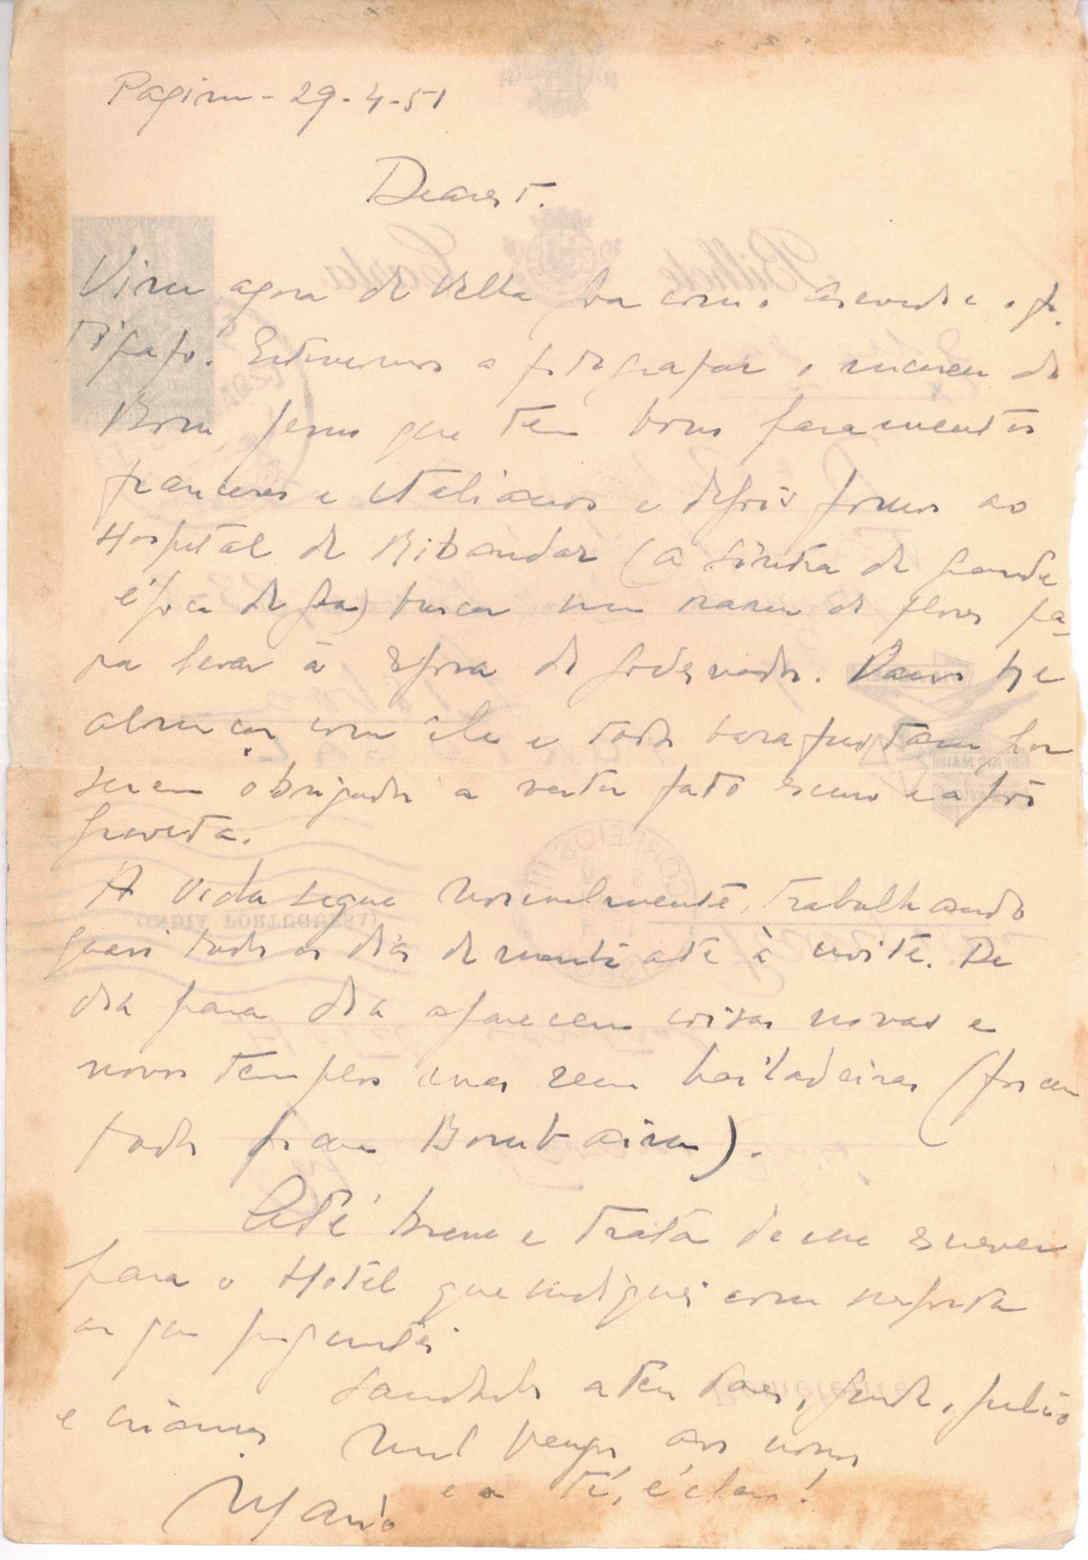 Pagim - 29-4-51
Dearest.
Vim agora de Velha Goa com o Azevedo e o
Bifafo. Estivemos a fotografar o museu do
Bom Jesus que tem bons paramentos
franceses e italianos e depois fomos ao
Hospital de Ribandar (a Sintra da grande
época de Goa) buscar um ramo de flores pa-
ra levar à esposa do governador. Vamos hoje
almoçar com ele e todos barafustam por
serem obrigados a vestir fato escuro e a pôr
gravata.
A vida segue normalmente, trabalhando
quasi todos os dias de manhã até à noite. De
dia para dia aparecem coisas novas e
novos templos mas sem bailadeiras (foram
todas para Bombaim).
Até breve e trata de me escrever
para o Hotel que indiquei com resposta
ao que perguntei
Saudades a teu Pai, Julião
e crianças Mil beijos aos nossos
e a ti, é claro!
Mário
Bilhete Carta
CORREIOS
(INDIA PORTUGUESA)